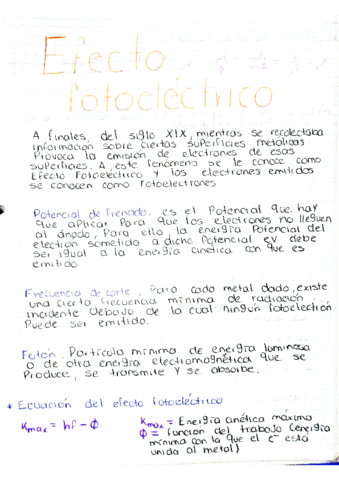 Efecto
fotoeléctrico
A finales, del siglo XIX, mientras se recolectaba
información sobre ciertas superficies metálicas
Provoca la emisión de electrones de esas
superficies. A, este fenómeno se le conoce como
Efecto Fotoeléctrico y los electrones emitidos
se conocen como fotoelectrones
Potencial de frenado. es el Potencial que hay
que aplicar Para que los electrones no lleguen
al ánodo, Para ello, la energía Potencial del
electron sometido a dicho Potencial eV debe
ser igual a la energía cinética con que es
emitido
Frecuencia de corte. Para cada metal dado, existe
una cierta frecuencia mínima de radiación
incidente Debajo de la cual ningún fotoelectrón
Puede ser emitido.
Fotón. Partícula mínima de energía luminosa
o de otra energía electromagnética que se
Produce, se transmite y se absorbe.
* Ecuación del efecto fotoeléctrico
Kmax = hf - Φ
Kmax = Energía cinética máxima
Φ = función del trabajo (energía
mínima con la que el e⁻ está
unida al metal)